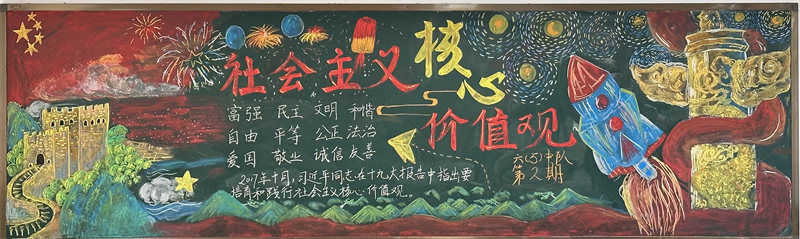 社会主义核心价值观
富强 民主 文明 和谐
自由 平等 公正 法治
爱国 敬业 诚信 友善
2017年十月,习近平同志在十九大报告中指出要
培育和践行社会主义核心价值观。
六(5)中队
第2期